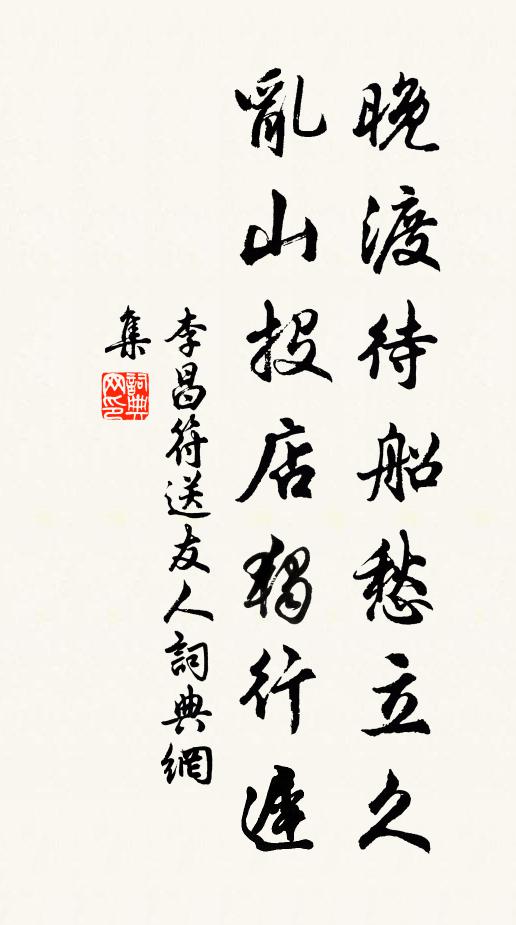 晚渡待船愁立久
亂山投店獨行遲
李昌符送友人詞典網
集
詞典
网印